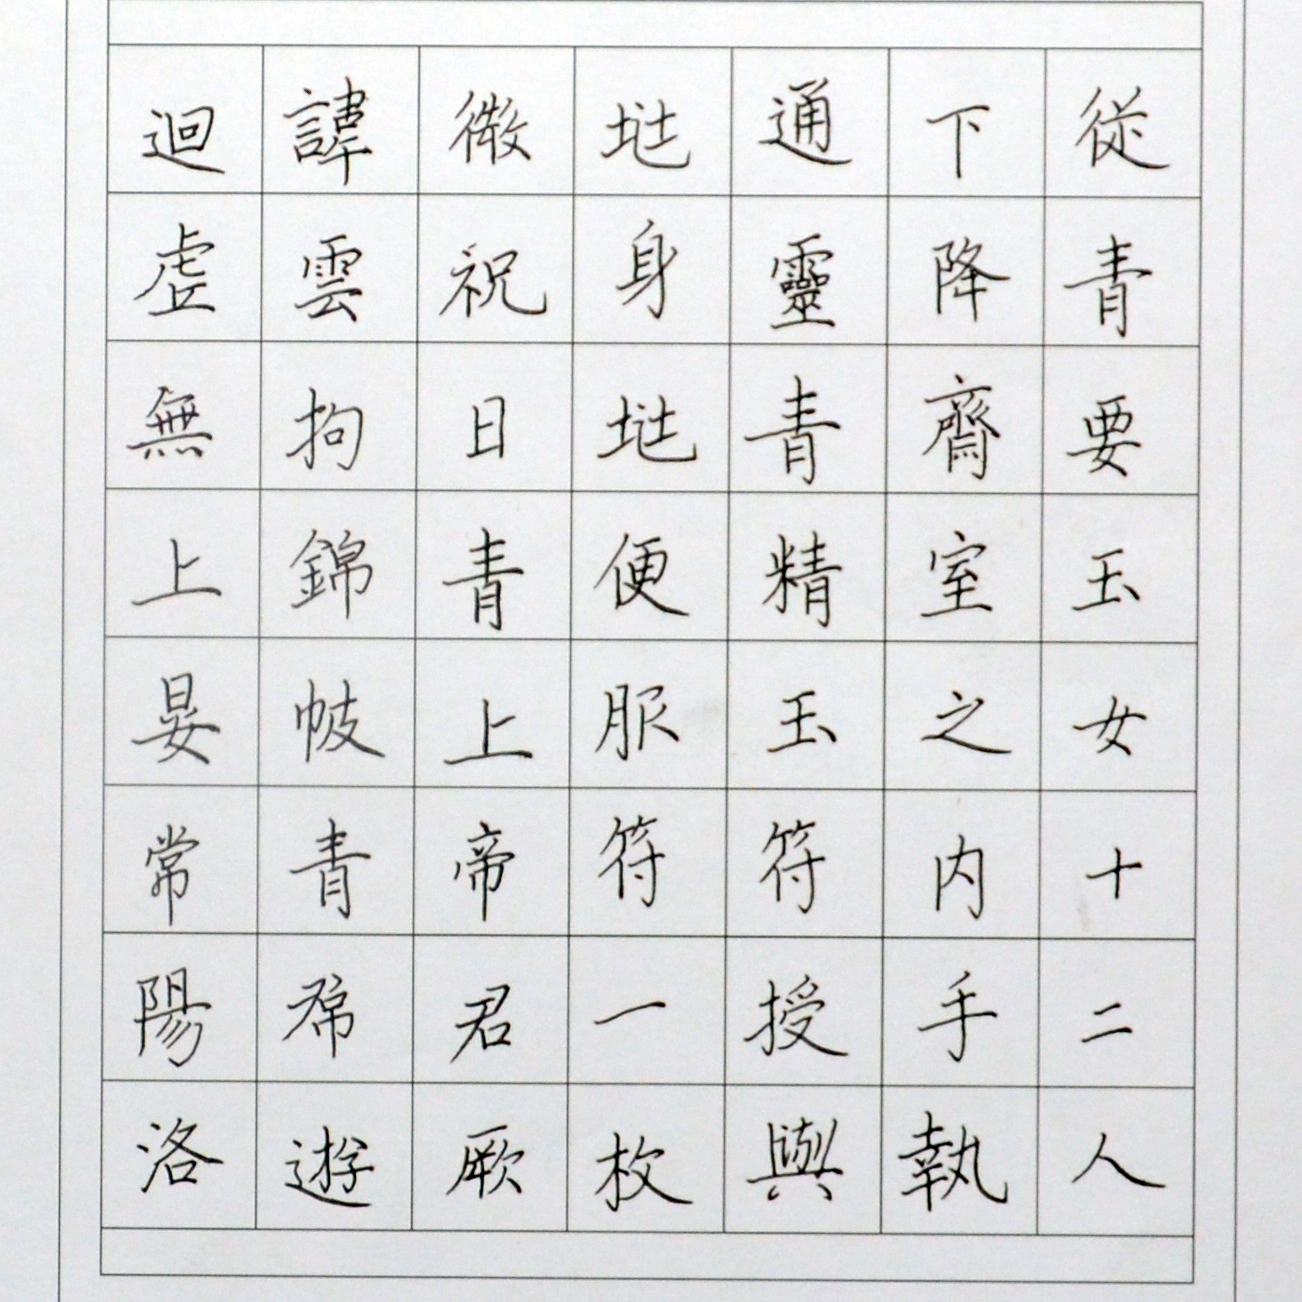 從青要玉女十二人
下降齋室之内手執
通靈青精玉符授與
兆身兆便服符一枚
微祝曰青上帝君厥
諱雲拘錦帔青帬遊
迴虛無上晏常陽洛